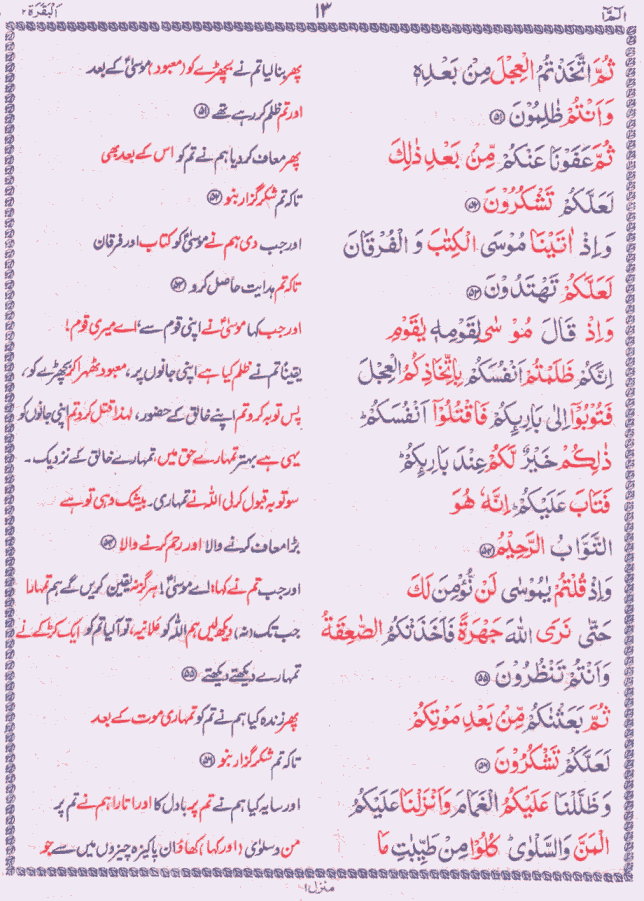 الٓمّٓا ١٣ اَلْبَقَرَة ٢
ثُمَّ اتَّخَذْتُمُ الْعِجْلَ مِنْ بَعْدِهٖ پھر بنا لیا تم نے بچھڑے کو (معبود) موسٰیؑ کے بعد
وَاَنْتُمْ ظٰلِمُوْنَ ﴿۵۱﴾ اور تم ظلم کر رہے تھے ﴿۵۱﴾
ثُمَّ عَفَوْنَا عَنْكُمْ مِّنْۢ بَعْدِ ذٰلِكَ پھر معاف کر دیا ہم نے تم کو اس کے بعد بھی
لَعَلَّكُمْ تَشْكُرُوْنَ ﴿۵۲﴾ تاکہ تم شکر گزار بنو ﴿۵۲﴾
وَاِذْ اٰتَيْنَا مُوْسَى الْكِتٰبَ وَ الْفُرْقَانَ اور جب دی ہم نے موسٰیؑ کو کتاب اور فرقان
لَعَلَّكُمْ تَهْتَدُوْنَ ﴿۵۳﴾ تاکہ تم ہدایت حاصل کرو ﴿۵۳﴾
وَاِذْ قَالَ مُوْسٰى لِقَوْمِهٖ يٰقَوْمِ اور جب کہا موسٰیؑ نے اپنی قوم سے، اے میری قوم!
اِنَّكُمْ ظَلَمْتُمْ اَنْفُسَكُمْ بِاتِّخَاذِكُمُ الْعِجْلَ یقیناً تم نے ظلم کیا ہے اپنی جانوں پر، معبود ٹھہرا کر بچھڑے کو،
فَتُوْبُوْٓا اِلٰى بَارِىِٕكُمْ فَاقْتُلُوْٓا اَنْفُسَكُمْ ؕ پس توبہ کرو تم اپنے خالق کے حضور، لہٰذا قتل کرو تم اپنی جانوں کو
ذٰلِكُمْ خَيْرٌ لَّكُمْ عِنْدَ بَارِىِٕكُمْ ؕ یہی ہے بہتر تمہارے حق میں، تمہارے خالق کے نزدیک۔
فَتَابَ عَلَيْكُمْ ؕ اِنَّهٗ هُوَ سو توبہ قبول کر لی اللہ نے تمہاری۔ بیشک وہی تو ہے
التَّوَّابُ الرَّحِيْمُ ﴿۵۴﴾ بڑا معاف کرنے والا اور رحم کرنے والا ﴿۵۴﴾
وَاِذْ قُلْتُمْ يٰمُوْسٰى لَنْ نُّؤْمِنَ لَكَ اور جب تم نے کہا، اے موسٰیؑ! ہرگز نہ یقین کریں گے ہم تمہارا
حَتّٰى نَرَى اللّٰهَ جَهْرَةً فَاَخَذَتْكُمُ الصّٰعِقَةُ جب تک (نہ) دیکھ لیں ہم اللہ کو علانیہ، تو آ لیا تم کو ایک کڑک نے
وَاَنْتُمْ تَنْظُرُوْنَ ﴿۵۵﴾ تمہارے دیکھتے دیکھتے ﴿۵۵﴾
ثُمَّ بَعَثْنٰكُمْ مِّنْۢ بَعْدِ مَوْتِكُمْ پھر زندہ کیا ہم نے تم کو تمہاری موت کے بعد
لَعَلَّكُمْ تَشْكُرُوْنَ ﴿۵۶﴾ تاکہ تم شکر گزار بنو ﴿۵۶﴾
وَ ظَلَّلْنَا عَلَيْكُمُ الْغَمَامَ وَاَنْزَلْنَا عَلَيْكُمُ اور سایہ کیا ہم نے تم پر بادل کا اور اتارا ہم نے تم پر
الْمَنَّ وَالسَّلْوٰى ؕ كُلُوْا مِنْ طَيِّبٰتِ مَا من و سلوٰی (اور کہا) کھاؤ ان پاکیزہ چیزوں میں سے جو
منزل ١